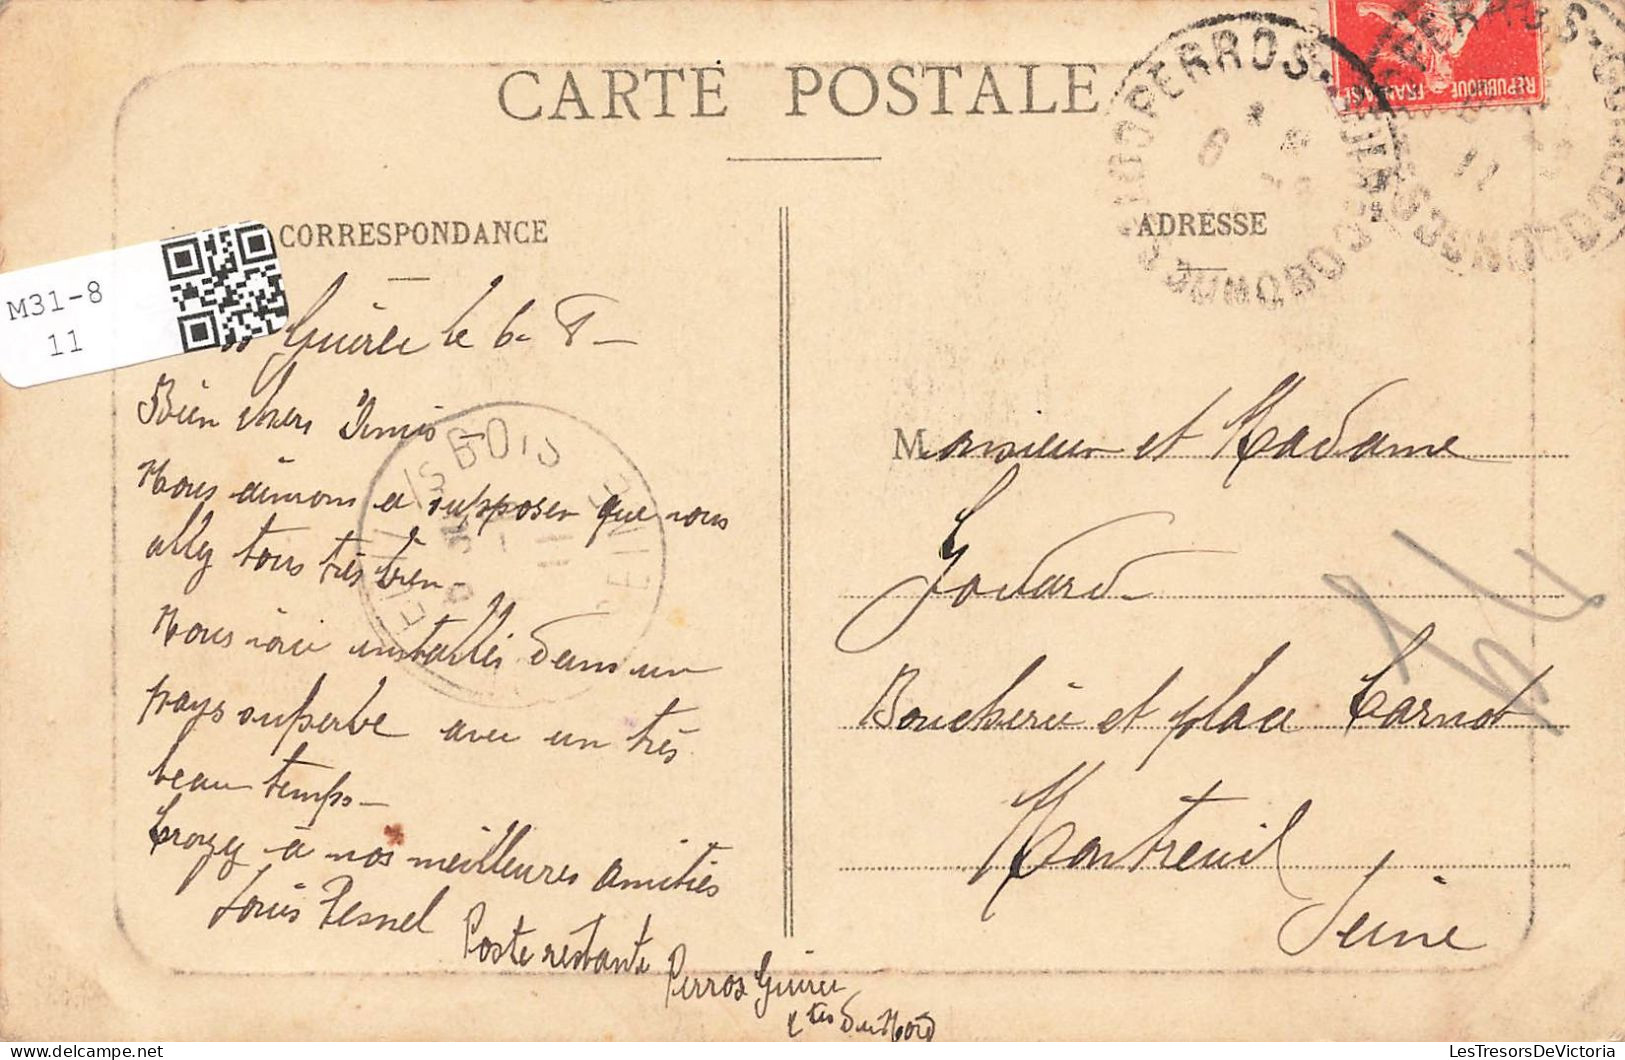 CARTE POSTALE
CORRESPONDANCE
ADRESSE
M31-8
11
Guirec le 6 - 8 -
Bien chers Amis -
Nous aimons a supposer que vous
allez tous très bien -
Nous voici installés dans un
pays superbe avec un très
beau temps -
Croyez à nos meilleures amitiés
Louis Pesnel
Poste restante
Perros Guirec
Ctes du Nord
Monsieur et Madame
Godard -
Boucherie et place Carnot
Montreuil
Seine
REPUBLIQUE - FRANÇAISE
PERROS-GUIREC
COTES DU NORD
6
PERROS-GUIREC
COTES DU NORD
11
S/ BOIS
SEINE
11
LesTresorsDeVictoria